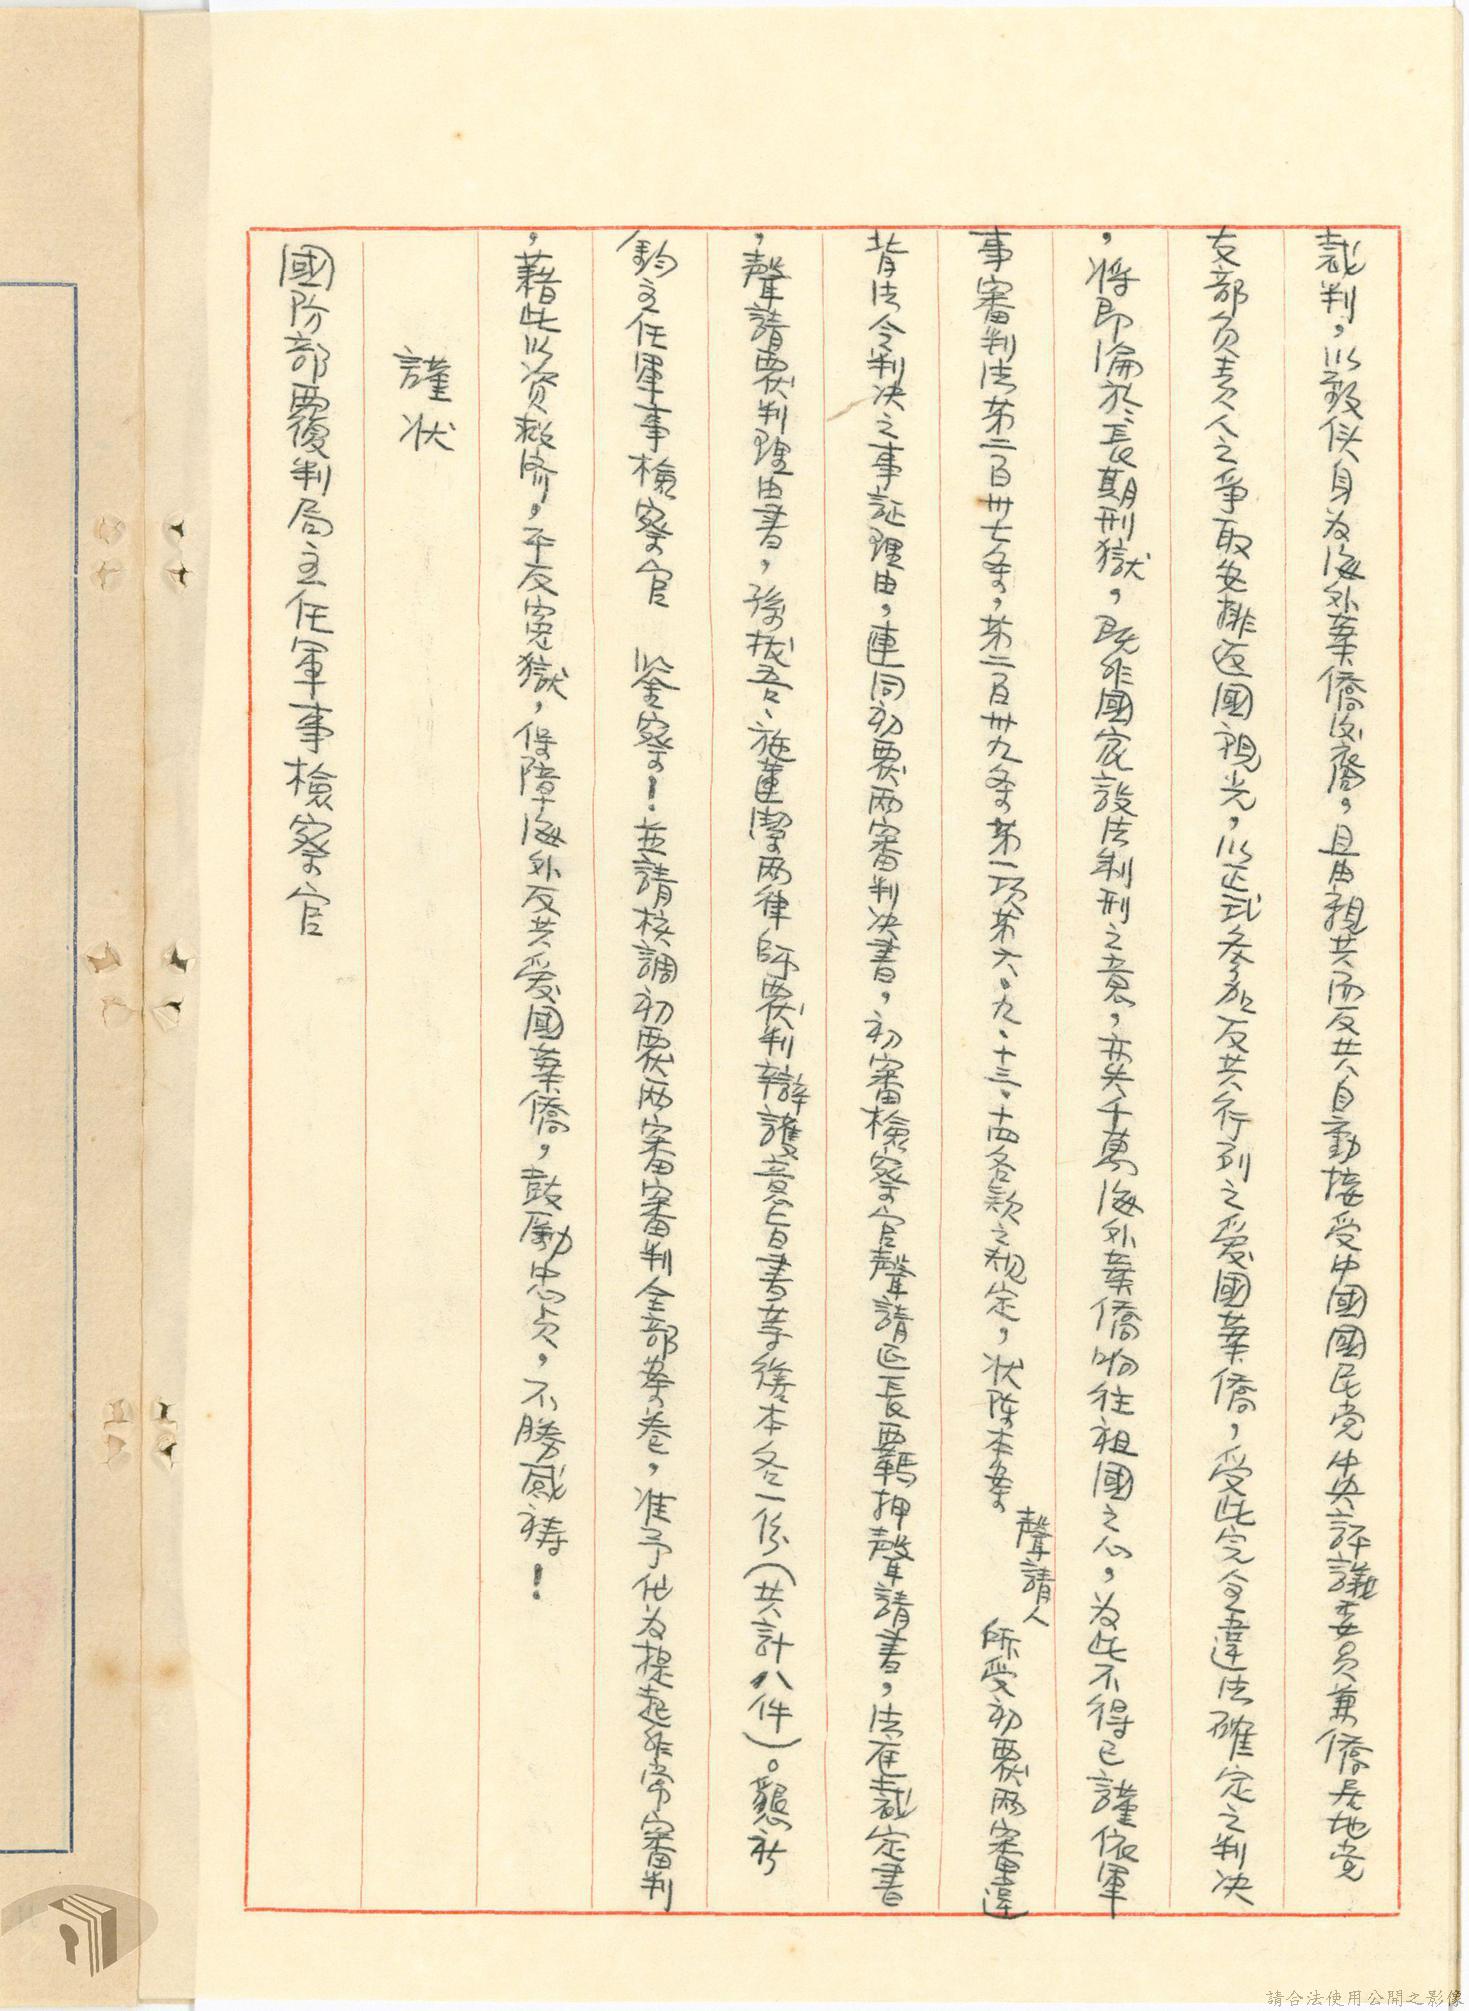 裁判，以致似身為海外葉僑後裔，且由親共而反共自動接受中國國民党中央評議委員兼僑居地党
支部負責人之爭取安排返國観光，以正式參加反共行列之愛國葉僑，受此完全違法確定之判决
，将即淪於長期刑獄，既非國家設法制刑之意，亦失千萬海外葉僑响往祖國之心，为此不得已謹依軍
事審判法第二百卅七条，第二百卅九条第一項第六．九．十三．十四各款之規定，状陈本案聲請人所受初覆两審違
背法令判决之事証理由，連同初覆两審判决書，初審檢察官聲請延長羈押聲請書，法庭裁定書
，聲請覆判理由書，孫拔吾、施蓮潔两律師覆判辯護意旨書等繕本各一份（共計八件）。懇祈
鈞主任軍事檢察官　鉴察！並請核調初覆两審審判全部案卷，准予他为提起非常審判
，藉此以資救済，平反寃獄，保障海外反共愛國葉僑，鼓勵忠贞，不勝感祷！
謹状
國防部覆判局主任軍事檢察官
請合法使用公開之影像